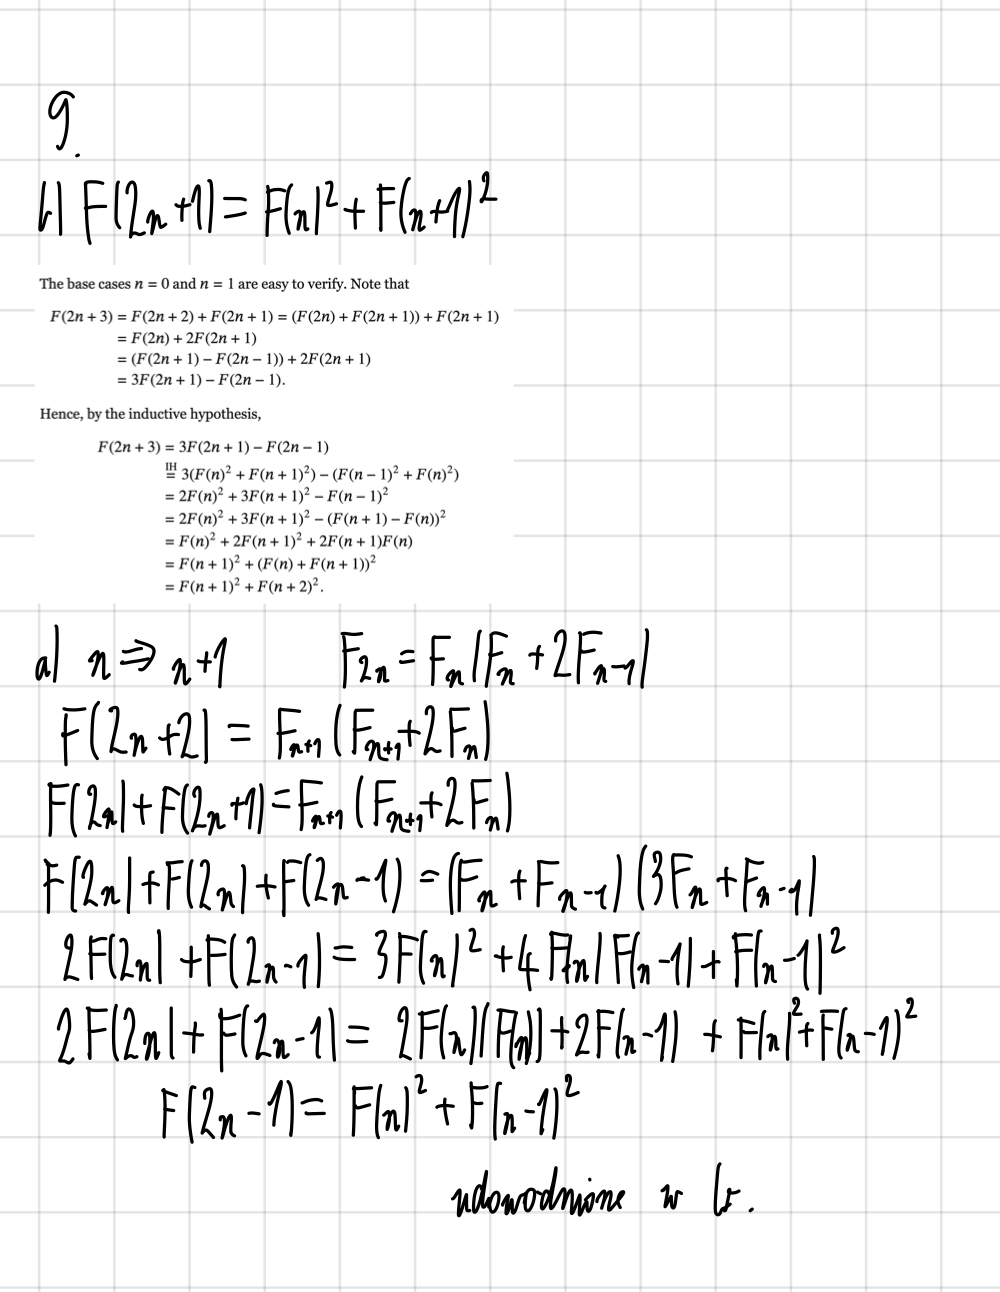 9.
b) F(2n+1) = F(n)² + F(n+1)²
The base cases n = 0 and n = 1 are easy to verify. Note that
F(2n + 3) = F(2n + 2) + F(2n + 1) = (F(2n) + F(2n + 1)) + F(2n + 1)
= F(2n) + 2F(2n + 1)
= (F(2n + 1) − F(2n − 1)) + 2F(2n + 1)
= 3F(2n + 1) − F(2n − 1).
Hence, by the inductive hypothesis,
F(2n + 3) = 3F(2n + 1) − F(2n − 1)
IH
= 3(F(n)² + F(n + 1)²) − (F(n − 1)² + F(n)²)
= 2F(n)² + 3F(n + 1)² − F(n − 1)²
= 2F(n)² + 3F(n + 1)² − (F(n + 1) − F(n))²
= F(n)² + 2F(n + 1)² + 2F(n + 1)F(n)
= F(n + 1)² + (F(n) + F(n + 1))²
= F(n + 1)² + F(n + 2)².
a) n ⇒ n+1 F₂ₙ = Fₙ(Fₙ + 2Fₙ₋₁)
F(2n+2) = Fₙ₊₁(Fₙ₊₁+2Fₙ)
F(2n)+F(2n+1)=Fₙ₊₁(Fₙ₊₁+2Fₙ)
F(2n)+F(2n)+F(2n-1) = (Fₙ+Fₙ₋₁)(3Fₙ+Fₙ₋₁)
2F(2n)+F(2n-1)= 3F(n)²+4F(n)F(n-1)+F(n-1)²
2F(2n)+F(2n-1)= 2F(n)(F(n)+2F(n-1) + F(n)²+F(n-1)²
F(2n-1)= F(n)²+F(n-1)²
udowodnione w b.